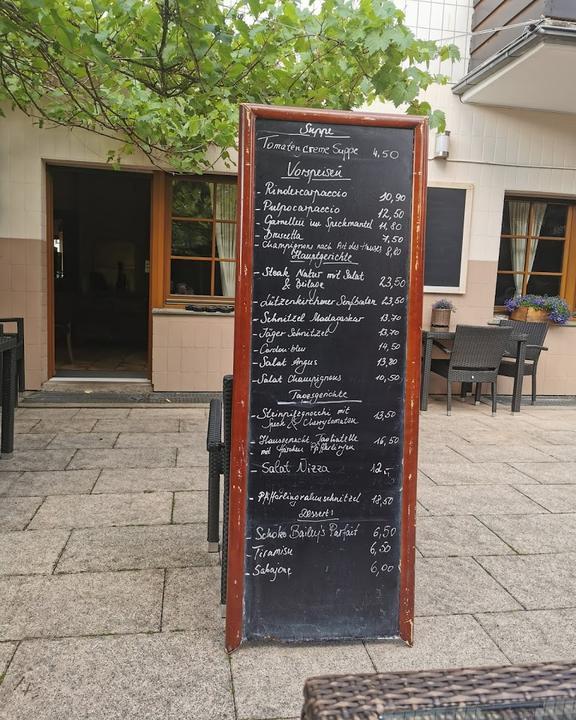 Suppe
Tomatencreme Suppe 4,50
Vorspeisen
- Rindercarpaccio 10,90
- Pulpocarpaccio 12,50
- Garnellen im Speckmantel 11,80
- Brusetta 7,50
- Champignon nach Art des Hauses 8,80
Hauptgerichte
- Steak Natur mit Salat
& Beilage 23,50
- Lützenkirchener Senfbraten 23,50
- Schnitzel Madagaskar 13,70
- Jäger Schnitzel 13,70
- Cordon-bleu 14,50
- Salat Angus 13,80
- Salat Champignons 10,50
Tagesgerichte
- Steinpilzgnocchi mit 13,50
Speck & Cherrytomaten
- Hausgemacht Tagliatelle 16,50
mit frischen Pfifferlingen
- Salat Nizza 12,-
- Pfifferlingrahmschnitzel 18,50
Dessert:
- Schoko Bailey's Parfait 6,50
- Tiramisu 6,50
- Sabajone 6,00